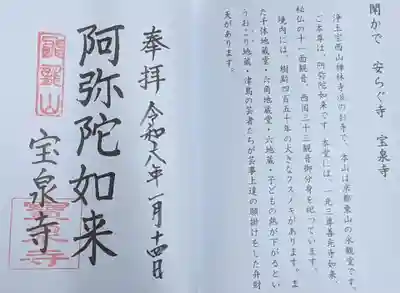 開かで 安らぐ寺 宝泉寺
浄土宗西山禅林寺派のお寺で、本山は京都東山の永観堂です。
ご本尊は、阿弥陀如来です。本堂には、一光三尊善光寺如来、
秘仏の十一面観音、西国三十三観音御分身を祀っています。
境内には、樹齢四百五十年の大きなクスノキがあります。ま
た千体地蔵堂・六角地蔵堂・六地蔵・子どもの熱が下がるとい
う地蔵・津島の芸者たちが芸事上達の願掛けをした弁財
天があります。
奉拝 令和八年一月十四日
阿弥陀如来
龍山
宝泉寺
寶泉寺